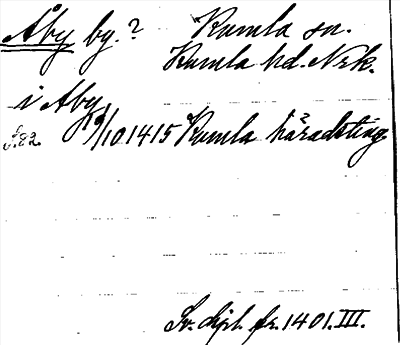 Åby by.? Kumla sn.
Kumla hd. Nrk.
i Aby
19/10 1415 Kumla häradsting
Sv. dipl. fr. 1401. III.